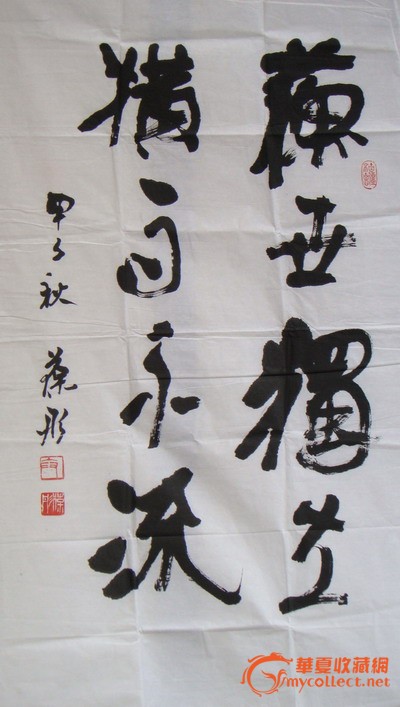 蘇世獨立
橫而不流
甲子秋
華夏收藏網
mycollect.net